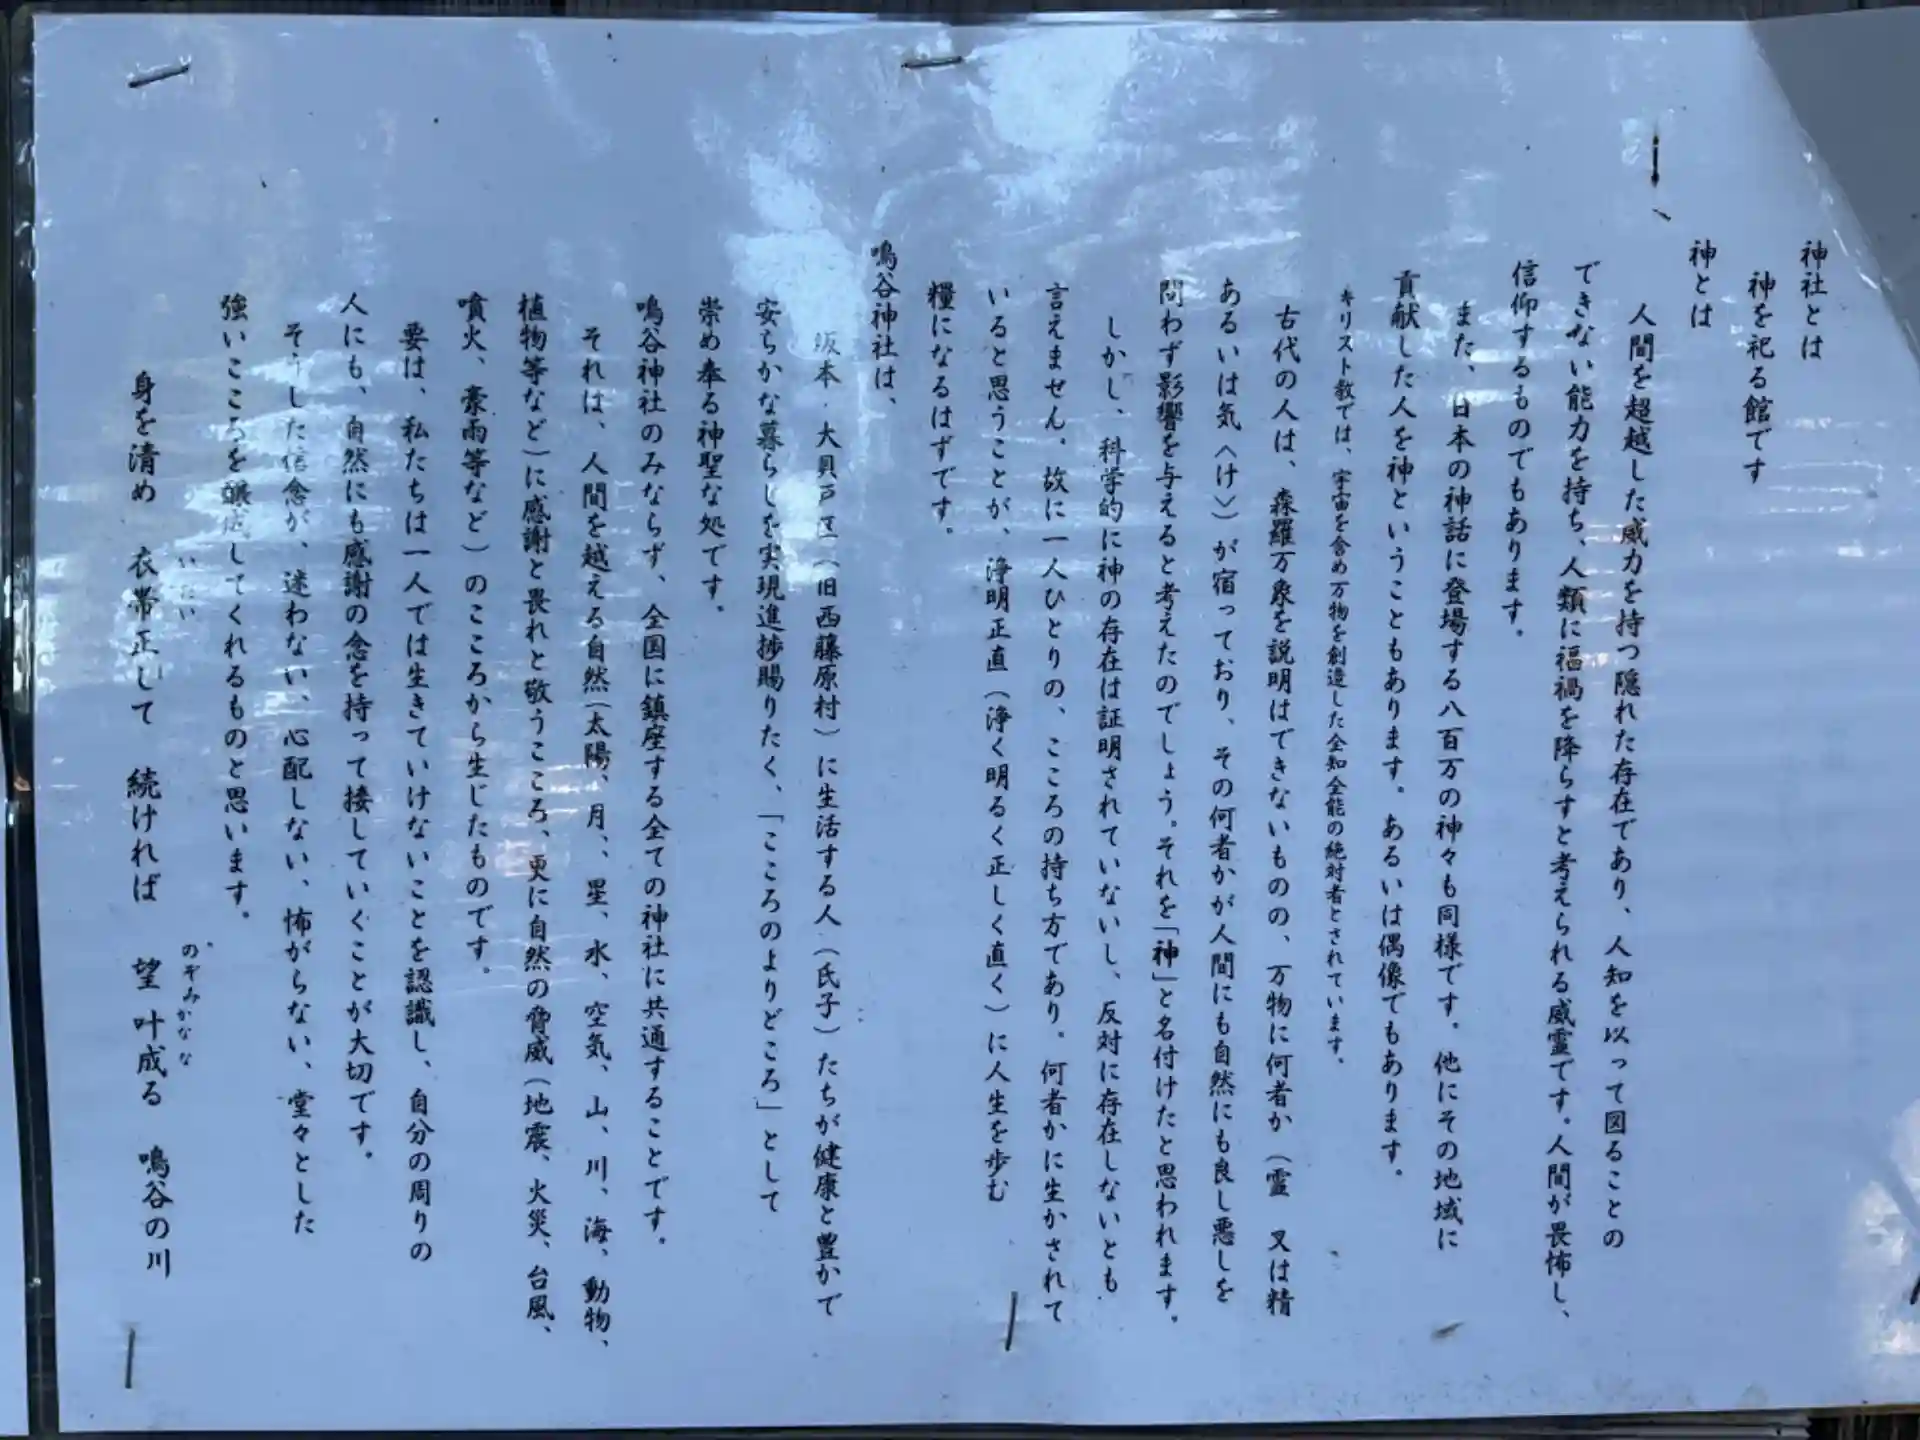 神社とは
神を祀る館です
神とは
人間を超越した威力を持つ隠れた存在であり、人知を以って図ることの
できない能力を持ち、人類に福禍を降らすと考えられる威霊です。人間が畏怖し、
信仰するものでもあります。
また、日本の神話に登場する八百万の神々も同様です。他にその地域に
貢献した人を神ということもあります。あるいは偶像でもあります。
キリスト教では、宇宙を含め万物を創造した全知全能の絶対者とされています。
古代の人は、森羅万象を説明はできないものの、万物に何者か（霊 又は精
あるいは気〈け〉）が宿っており、その何者かが人間にも自然にも良し悪しを
問わず影響を与えると考えたのでしょう。それを「神」と名付けたと思われます。
しかし、科学的に神の存在は証明されていないし、反対に存在しないとも
言えません。故に一人ひとりの、こころの持ち方であり。何者かに生かされて
いると思うことが、浄明正直（浄く明るく正しく直く）に人生を歩む
糧になるはずです。
鳴谷神社は、
坂本・大貝戸区（旧西藤原村）に生活する人（氏子）たちが健康と豊かで
安らかな暮らしを実現進捗賜りたく、「こころのよりどころ」として
崇め奉る神聖な処です。
鳴谷神社のみならず、全国に鎮座する全ての神社に共通することです。
それは、人間を越える自然（太陽、月、、星、水、空気、山、川、海、動物、
植物等など）に感謝と畏れと敬うこころ、更に自然の脅威（地震、火災、台風、
噴火、豪雨等など）のこころから生じたものです。
要は、私たちは一人では生きていけないことを認識し、自分の周りの
人にも、自然にも感謝の念を持って接していくことが大切です。
そうした信念が、迷わない、心配しない、怖がらない、堂々とした
強いこころを醸成してくれるものと思います。
いたい
のぞみかなな
身を清め 衣帯正して 続ければ 望叶成る 鳴谷の川